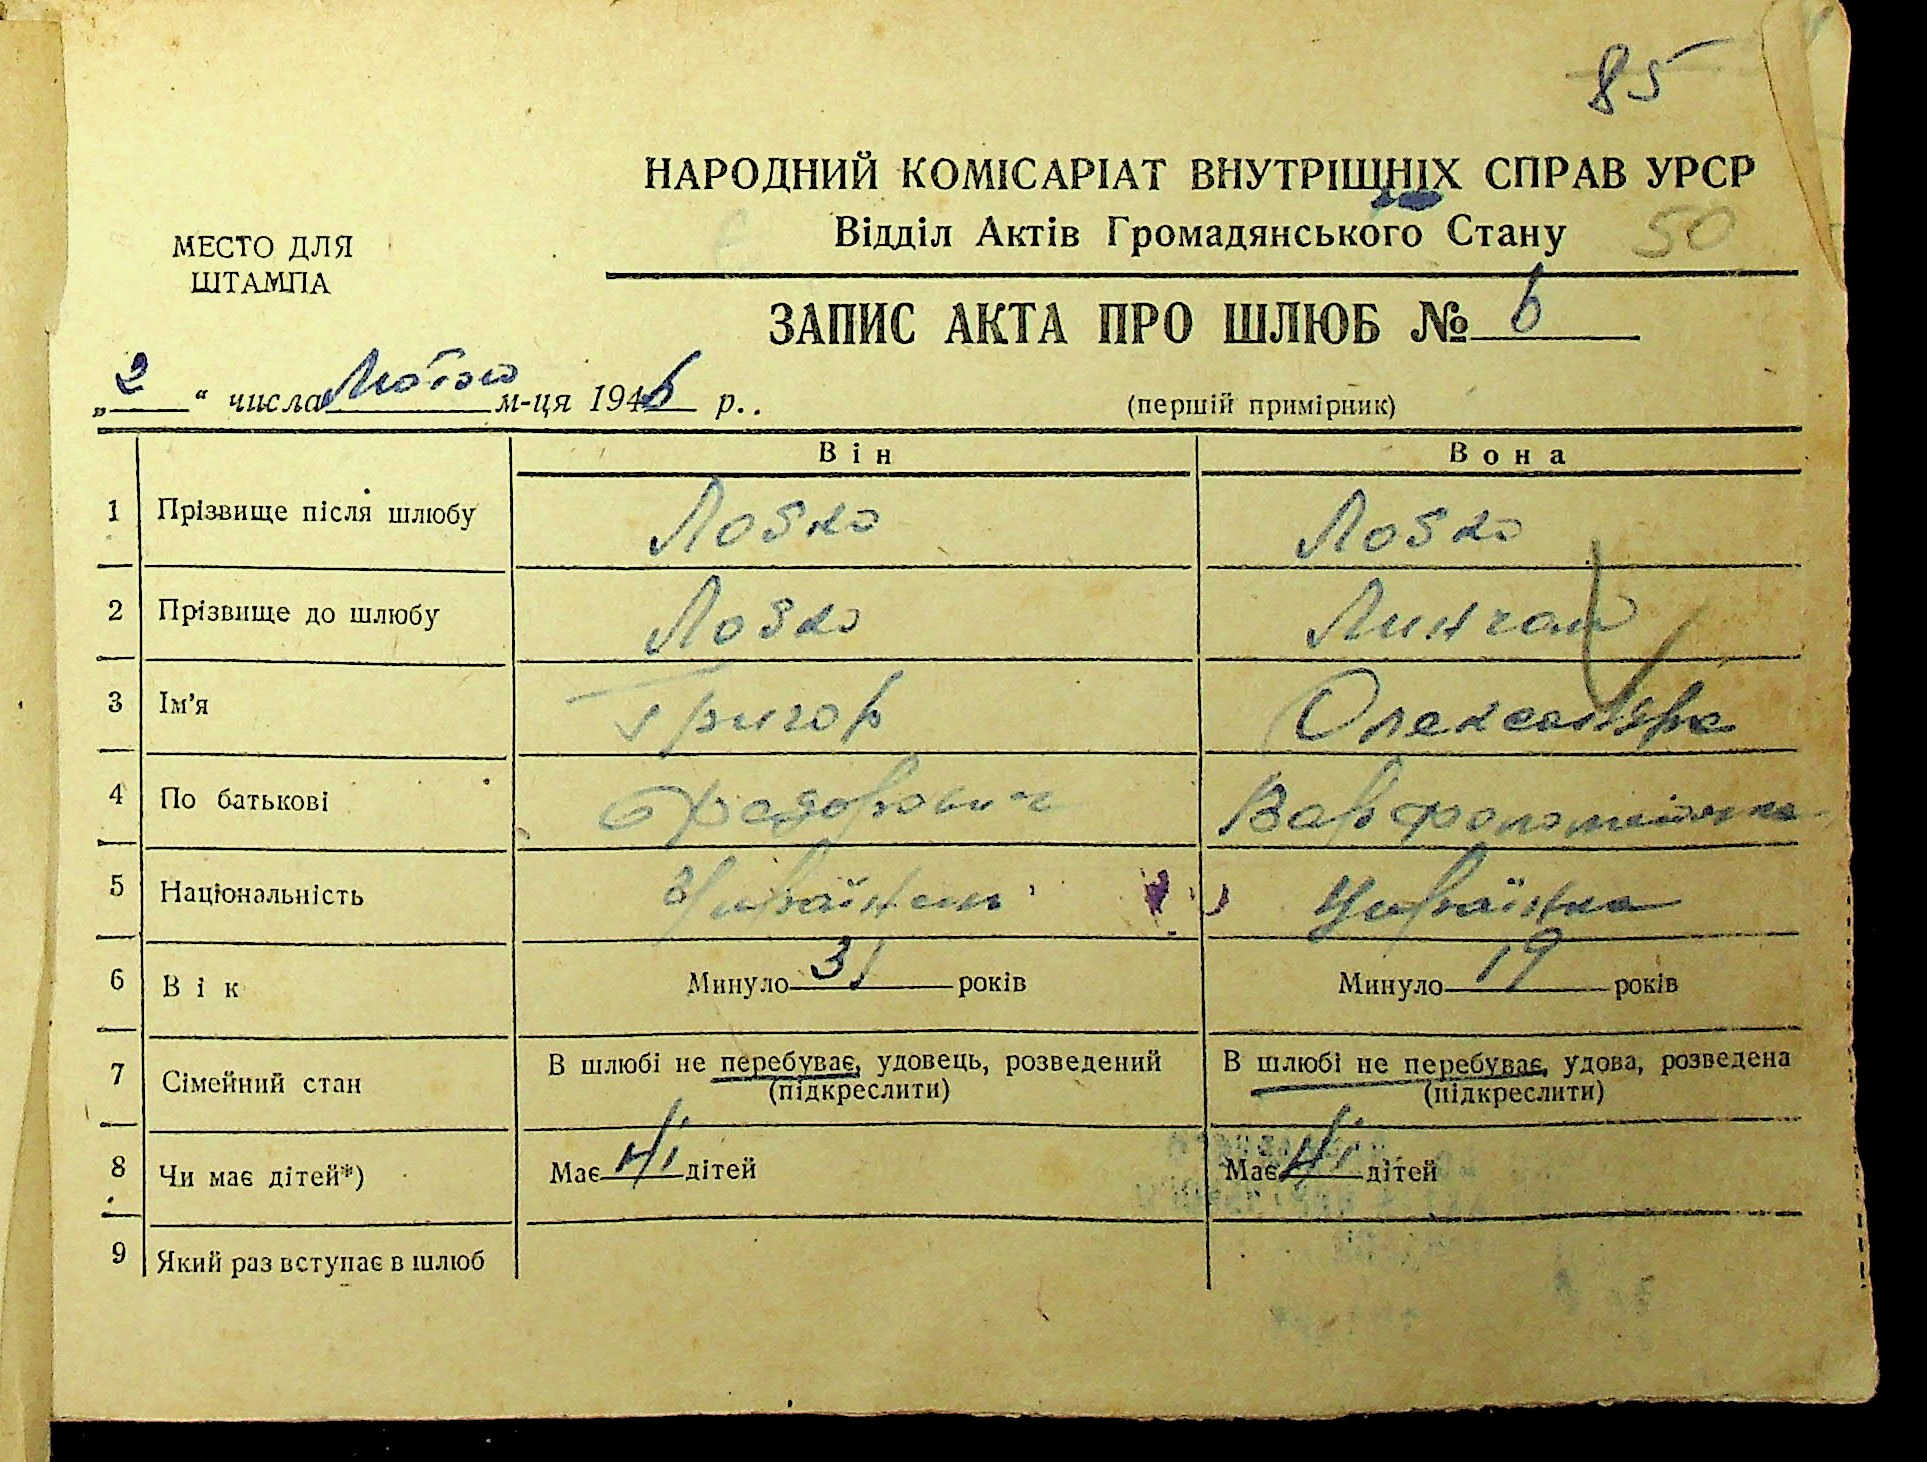 85
НАРОДНИЙ КОМІСАРІАТ ВНУТРІШНІХ СПРАВ УРСР
Відділ Актів Громадянського Стану 50
МЕСТО ДЛЯ
ШТАМПА
ЗАПИС АКТА ПРО ШЛЮБ № 6
„2“ числа Лютого м-ця 1946 р..
(першій примірник)
Він Вона
1 Прізвище після шлюбу Лобко Лобко
2 Прізвище до шлюбу Лобко
3 Ім'я Григор Олександра
4 По батькові Федорович Варфоломіївна
5 Національність Українець Українка
6 Вік Минуло 31 років Минуло 19 років
7 Сімейний стан В шлюбі не перебуває, удовець, розведений В шлюбі не перебуває, удова, розведена
(підкреслити) (підкреслити)
8 Чи має дітей*) Має Ні дітей Має Ні дітей
9 Який раз вступає в шлюб